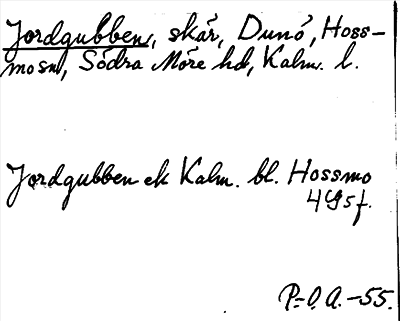 Jordgubben, skär, Dunö, Hoss-
mosn, Södra Möre hd, Kalm. l.
Jordgubben ek Kalm. bl. Hossmo
4g5f.
P.-O.A.-55.